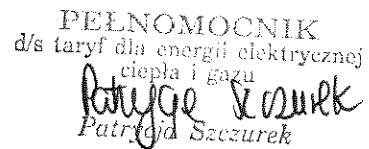 PEŁNOMOCNIK
d/s taryf dla energii elektrycznej
ciepła i gazu
Patrycja Szczurek
Patrycja Szczurek